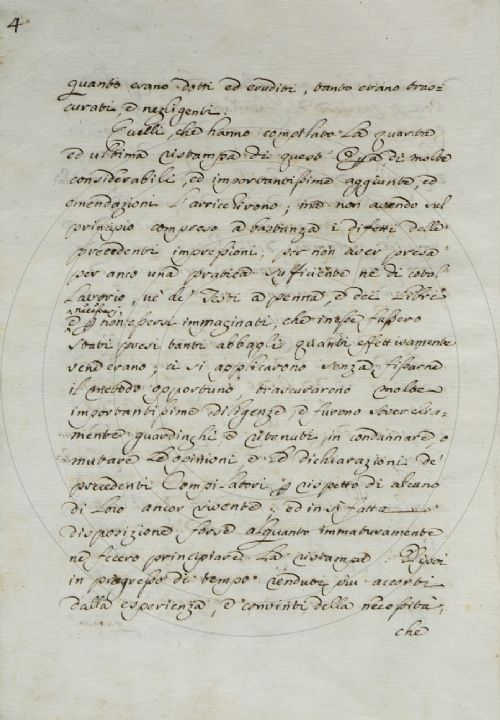 4
quanto erano dotti ed eruditi, tanto erano tras=
curati, e negligenti.
Quelli, che hanno compilato la quarta
ed ultima ristampa di quest' Opa di molte
considerabili, ed importantissime aggiunte, ed
emendazioni l'arricchirono; ma non avendo sul
principio compreso abbastanza i difetti delle
precedenti impressioni, per non aver presa
per anco una pratica sufficiente nè di cotal
Lavorio, nè de' Testi a penna, e dei Libri
necessarj
e p non essersi immaginati, che in essa fussero
stati presi tanti abbagli quanti effettivamente
ven'erano; ci si applicarono senza fissarne
il metodo opportuno trascurarono molte
importantissime diligenze, e furono soverchia=
mente guardinghi e ritenuti in condannare o
mutare le opinioni e le dichiarazioni de'
precedenti Compilatori p rispetto di alcuno
di Loro ancor vivente; ed in si fatta
disposizione forse alquanto immaturamente
ne fecero principiare la ristampa. Di poi
in progresso di tempo renduti più accorti
dalla esperienza, e convinti della necessità,
che